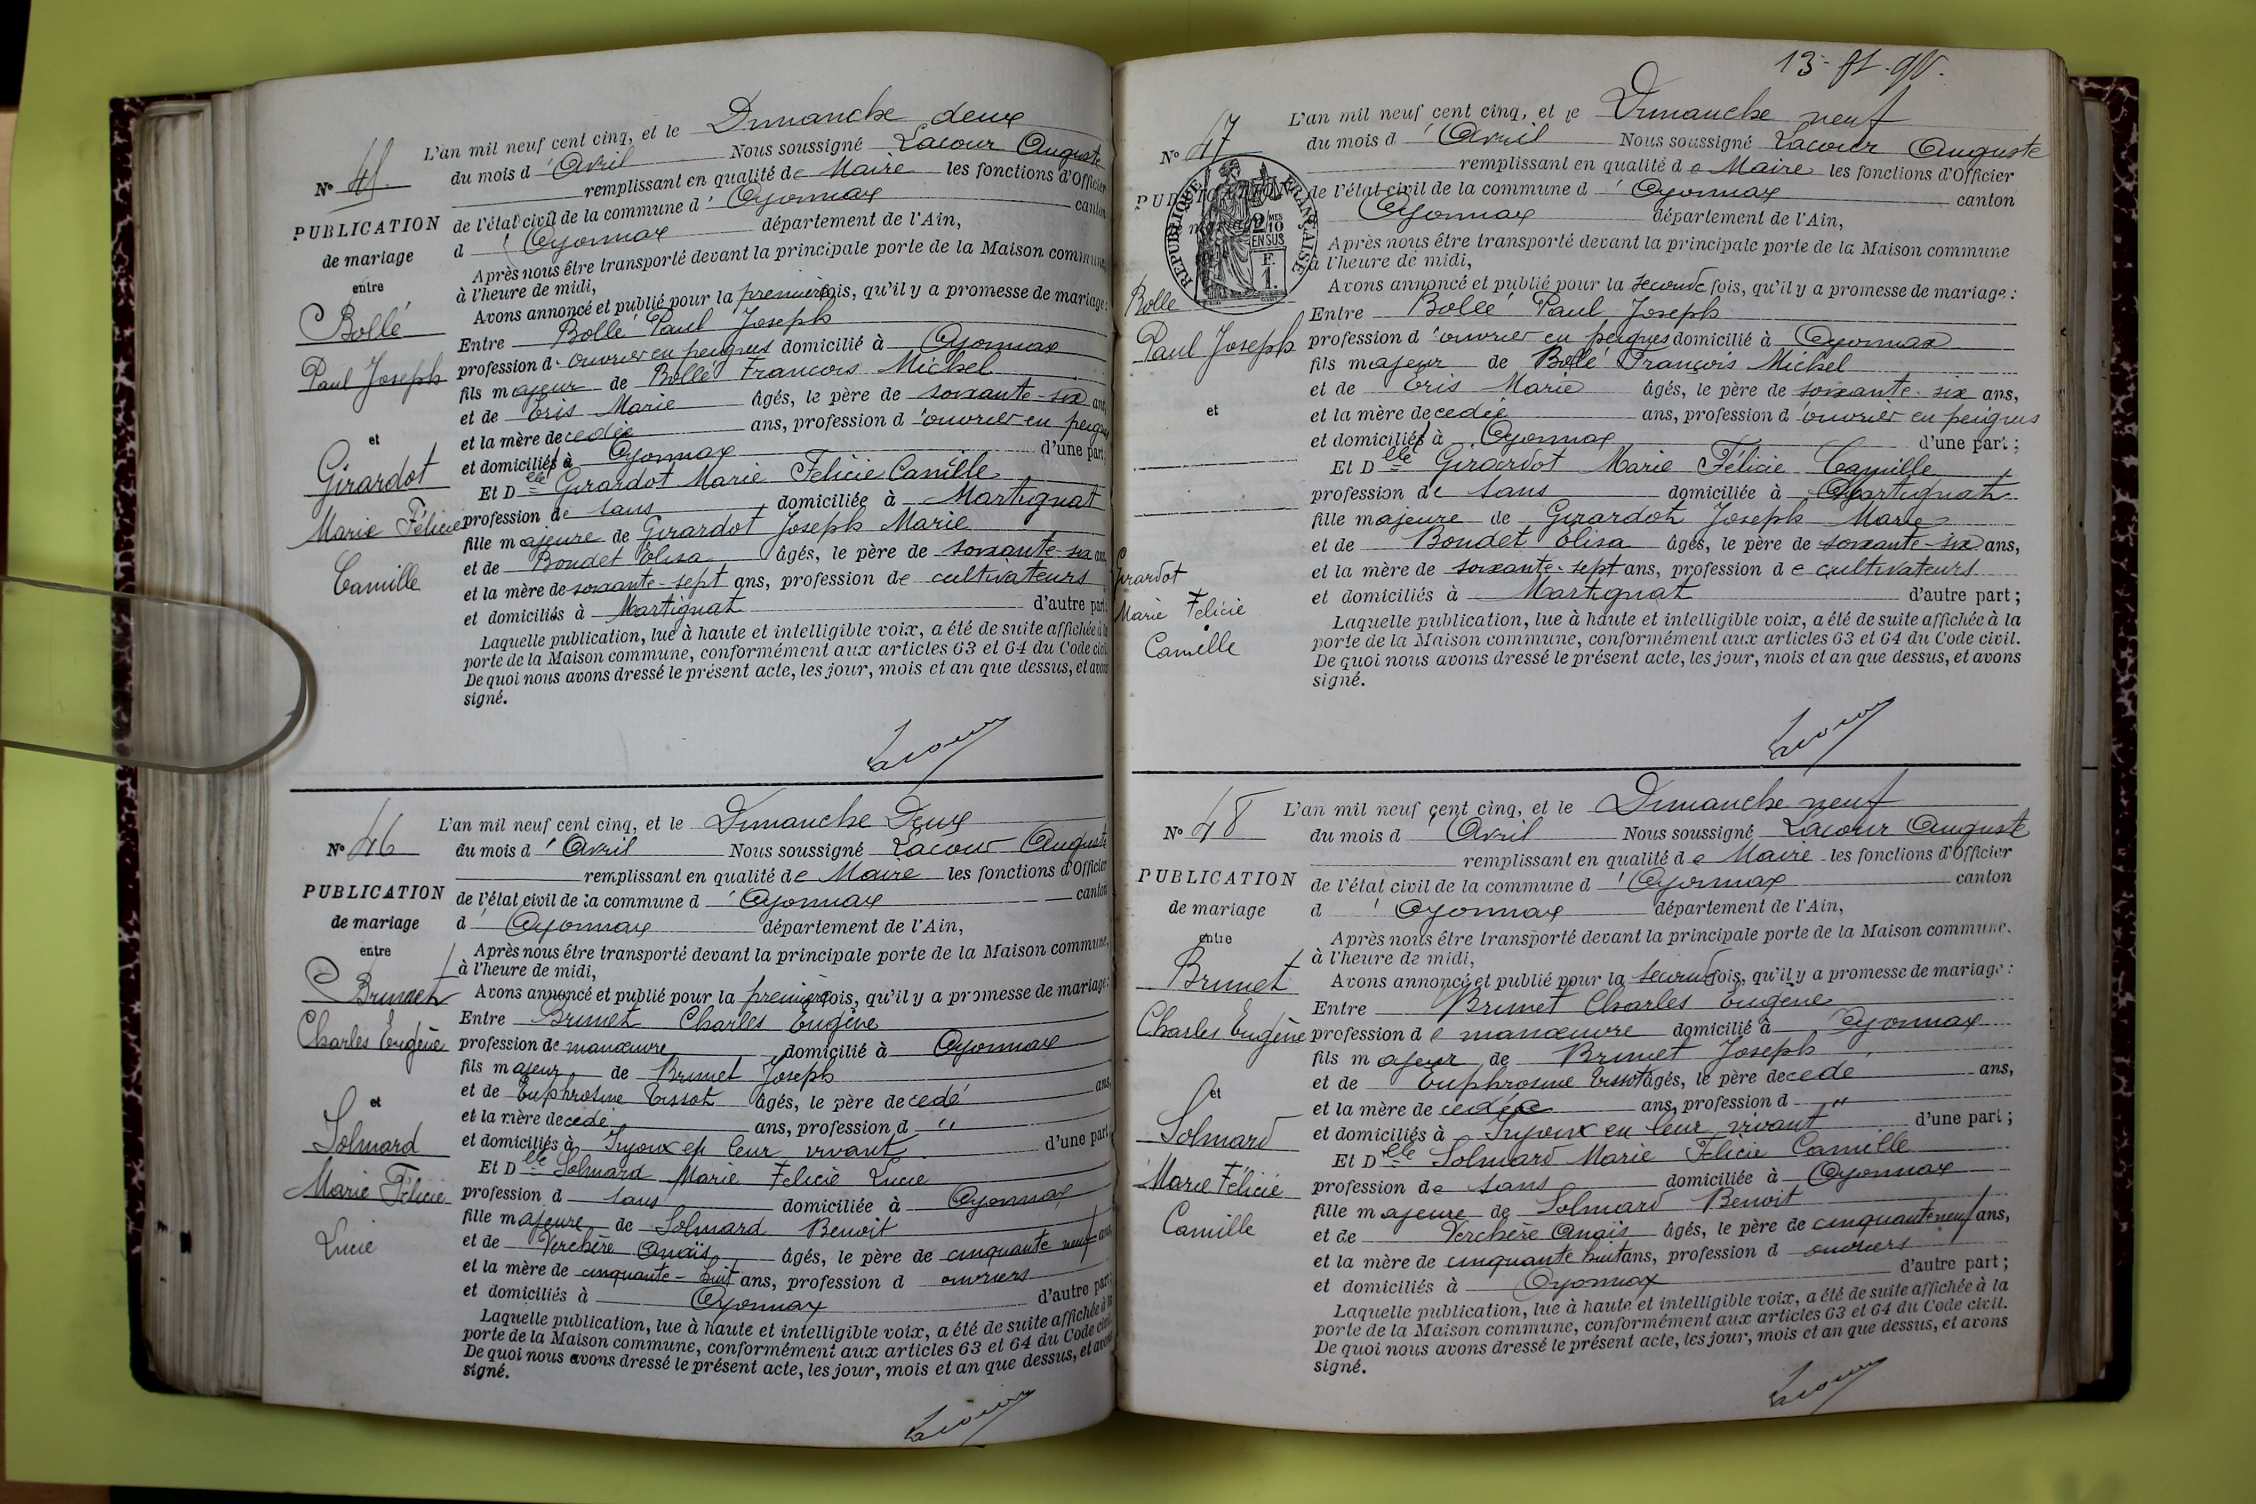 N° 45
PUBLICATION
de mariage
entre
Bollé
Paul Joseph
et
Girardot
Marie Félicie
Camille
L'an mil neuf cent cinq, et le Dimanche deux
du mois d'Avril Nous soussigné Lacour Auguste
remplissant en qualité de Maire les fonctions d'Officier
de l'état civil de la commune d'Oyonnax canton
d'Oyonnax département de l'Ain,
Après nous être transporté devant la principale porte de la Maison commune,
à l'heure de midi,
Avons annoncé et publié pour la première fois, qu'il y a promesse de mariage :
Entre Bollé Paul Joseph
profession d'ouvrier en peignes domicilié à Oyonnax
fils majeur de Bollé François Michel
et de Eris Marie âgés, le père de soixante-six ans,
et la mère decedée ans, profession d'ouvrier en peignes
et domiciliés à Oyonnax d'une part;
Et Dlle Girardot Marie Felicie Camille
profession de sans domiciliée à Martignat
fille majeure de Girardot Joseph Marie
et de Boudet Elisa âgés, le père de soixante-six ans,
et la mère de soixante-sept ans, profession de cultivateurs
et domiciliés à Martignat d'autre part;
Laquelle publication, lue à haute et intelligible voix, a été de suite affichée à la
porte de la Maison commune, conformément aux articles 63 et 64 du Code civil.
De quoi nous avons dressé le présent acte, les jour, mois et an que dessus, et avons
signé.
Lacour
N° 46
PUBLICATION
de mariage
entre
Brunet
Charles Eugène
et
Solmard
Marie Félicie
Lucie
L'an mil neuf cent cinq, et le Dimanche Deux
du mois d'Avril Nous soussigné Lacour Auguste
remplissant en qualité de Maire les fonctions d'Officier
de l'état civil de la commune d'Oyonnax canton
d'Oyonnax département de l'Ain,
Après nous être transporté devant la principale porte de la Maison commune,
à l'heure de midi,
Avons annoncé et publié pour la première fois, qu'il y a promesse de mariage :
Entre Brunet Charles Eugène
profession de manœuvre domicilié à Oyonnax
fils majeur de Brunet Joseph
et de Euphrosine Tissot âgés, le père decedé ans,
et la mère decedé ans, profession d "
et domiciliés à Injoux en leur vivant d'une part
Et Dlle Solmard Marie Felicie Lucie
profession d sans domiciliée à Oyonnax
fille majeure de Solmard Benoit
et de Verchère Anaïs âgés, le père de cinquante neuf ans,
et la mère de cinquante-huit ans, profession d ouvriers
et domiciliés à Oyonnax d'autre part;
Laquelle publication, lue à haute et intelligible voix, a été de suite affichée à la
porte de la Maison commune, conformément aux articles 63 et 64 du Code civil.
De quoi nous avons dressé le présent acte, les jour, mois et an que dessus, et avons
signé.
Lacour
N° 47
PUBLICATION
mariage
RÉPUBLIQUE FRANÇAISE
2 MES
10
EN SUS
F.
1
Bolle
Paul Joseph
et
Girardot
Marie Felicie
Camille
L'an mil neuf cent cinq, et le Dimanche neuf
du mois d'Avril Nous soussigné Lacour Auguste
remplissant en qualité de Maire les fonctions d'Officier
de l'état civil de la commune d'Oyonnax canton
Oyonnax département de l'Ain,
Après nous être transporté devant la principale porte de la Maison commune
à l'heure de midi,
Avons annoncé et publié pour la seconde fois, qu'il y a promesse de mariage :
Entre Bollé Paul Joseph
profession d'ouvrier en peignes domicilié à Oyonnax
fils majeur de Bollé François Michel
et de Eris Marie âgés, le père de soixante-six ans,
et la mère decedée ans, profession d'ouvrier en peignes
et domiciliés à Oyonnax d'une part;
Et Dlle Girardot Marie Félicie Camille
profession de sans domiciliée à Martignat
fille majeure de Girardot Joseph Marie
et de Boudet Elisa âgés, le père de soixante-six ans,
et la mère de soixante-sept ans, profession de cultivateurs
et domiciliés à Martignat d'autre part;
Laquelle publication, lue à haute et intelligible voix, a été de suite affichée à la
porte de la Maison commune, conformément aux articles 63 et 64 du Code civil.
De quoi nous avons dressé le présent acte, les jour, mois et an que dessus, et avons
signé.
Lacour
N° 48
PUBLICATION
de mariage
entre
Brunet
Charles Eugène
et
Solmard
Marie Félicie
Camille
L'an mil neuf cent cinq, et le Dimanche neuf
du mois d Avril Nous soussigné Lacour Auguste
remplissant en qualité de Maire les fonctions d'Officier
de l'état civil de la commune d'Oyonnax canton
d'Oyonnax département de l'Ain,
Après nous être transporté devant la principale porte de la Maison commune,
à l'heure de midi,
Avons annoncé et publié pour la seconde fois, qu'il y a promesse de mariage :
Entre Brunet Charles Eugène
profession de manœuvre domicilié à Oyonnax
fils majeur de Brunet Joseph
et de Euphrosine Tissot âgés, le père decedé ans,
et la mère decedée ans, profession d "
et domiciliés à Injoux en leur vivant d'une part;
Et Dlle Solmard Marie Félicie Camille
profession de sans domiciliée à Oyonnax
fille majeure de Solmard Benoit
et de Verchère Anaïs âgés, le père de cinquante neuf ans,
et la mère de cinquante huit ans, profession d ouvriers
et domiciliés à Oyonnax d'autre part;
Laquelle publication, lue à haute et intelligible voix, a été de suite affichée à la
porte de la Maison commune, conformément aux articles 63 et 64 du Code civil.
De quoi nous avons dressé le présent acte, les jour, mois et an que dessus, et avons
signé.
Lacour